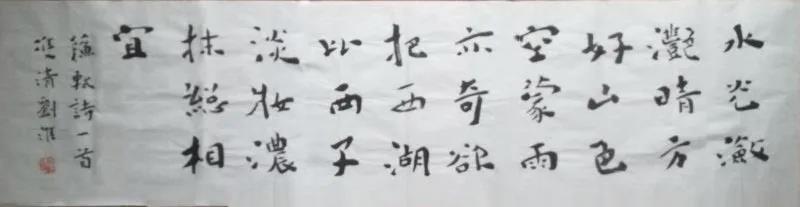 水光瀲
灧晴方
好山色
空蒙雨
亦奇欲
把西湖
比西子
淡妝濃
抹總相
宜
蘇軾詩一首
清劉